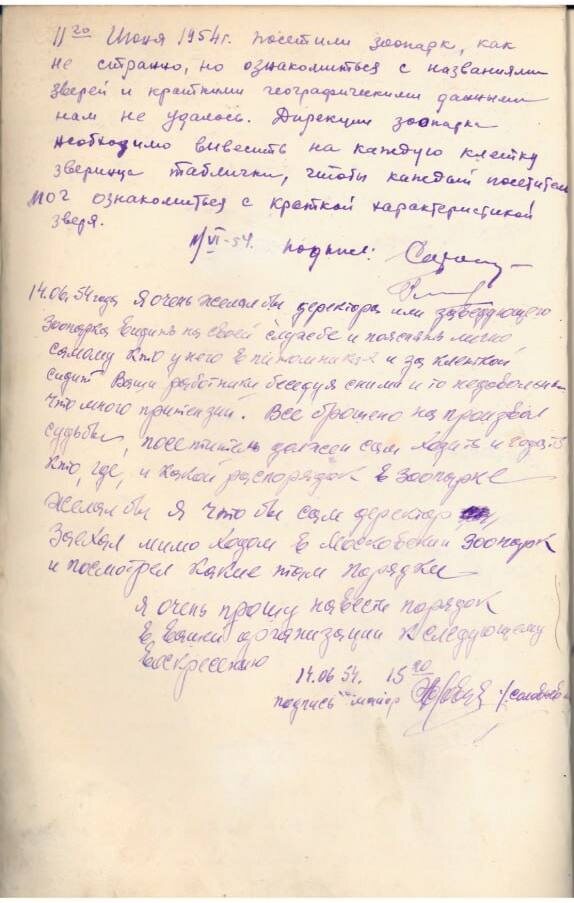 11го Июня 1954г. посетили зоопарк, как
не странно, но ознакомиться с названиями
зверей и краткими географическими данными
нам не удалось. Дирекции зоопарка
необходимо вывесить на каждую клетку
зверинца таблички, чтобы каждый посетитель
мог ознакомиться с краткой характеристикой
зверя.
11/VI-54. подписи:
14.06.54 года Я очень желал бы деректора или заведующего
Зоопарка видить на своей службе и пояснить лично,
самому кто у него в питомниках и за клеткой
сидит Ваши работники беседуя с ними и то недовольны
что много притензий. Все брошено на произвол
судьбы, посетитель должен сам ходить и гадать
кто, где, и какой распорядок в зоопарке
Желал бы я что бы сам деректор
Заехал мимо ходом в Московский зоопарк
и посмотрел какие там порядки
Я очень прошу навести порядок
в вашей организации к следующему
воскресению
14.06.54. 15
подпись майор